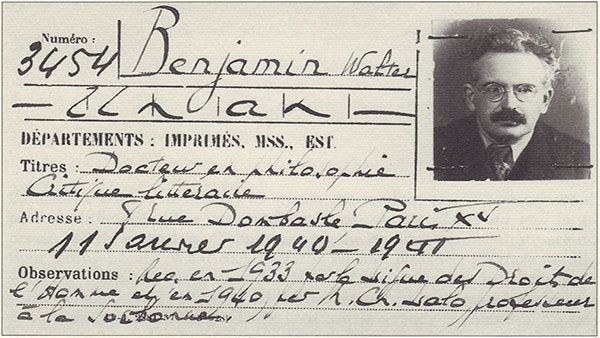 Numéro :
3454 Benjamin Walter
Un an
DÉPARTEMENTS : IMPRIMÉS, MSS., EST.
Titres : Docteur en philosophie
Critique littéraire
Adresse : rue Dombasle Paris XV
11 Janvier 1940 - 1941
Observations : Rec. en 1933 par la Ligue des Droits de
l'Homme et en 1940 par Ch. Lalo professeur
à la Sorbonne.